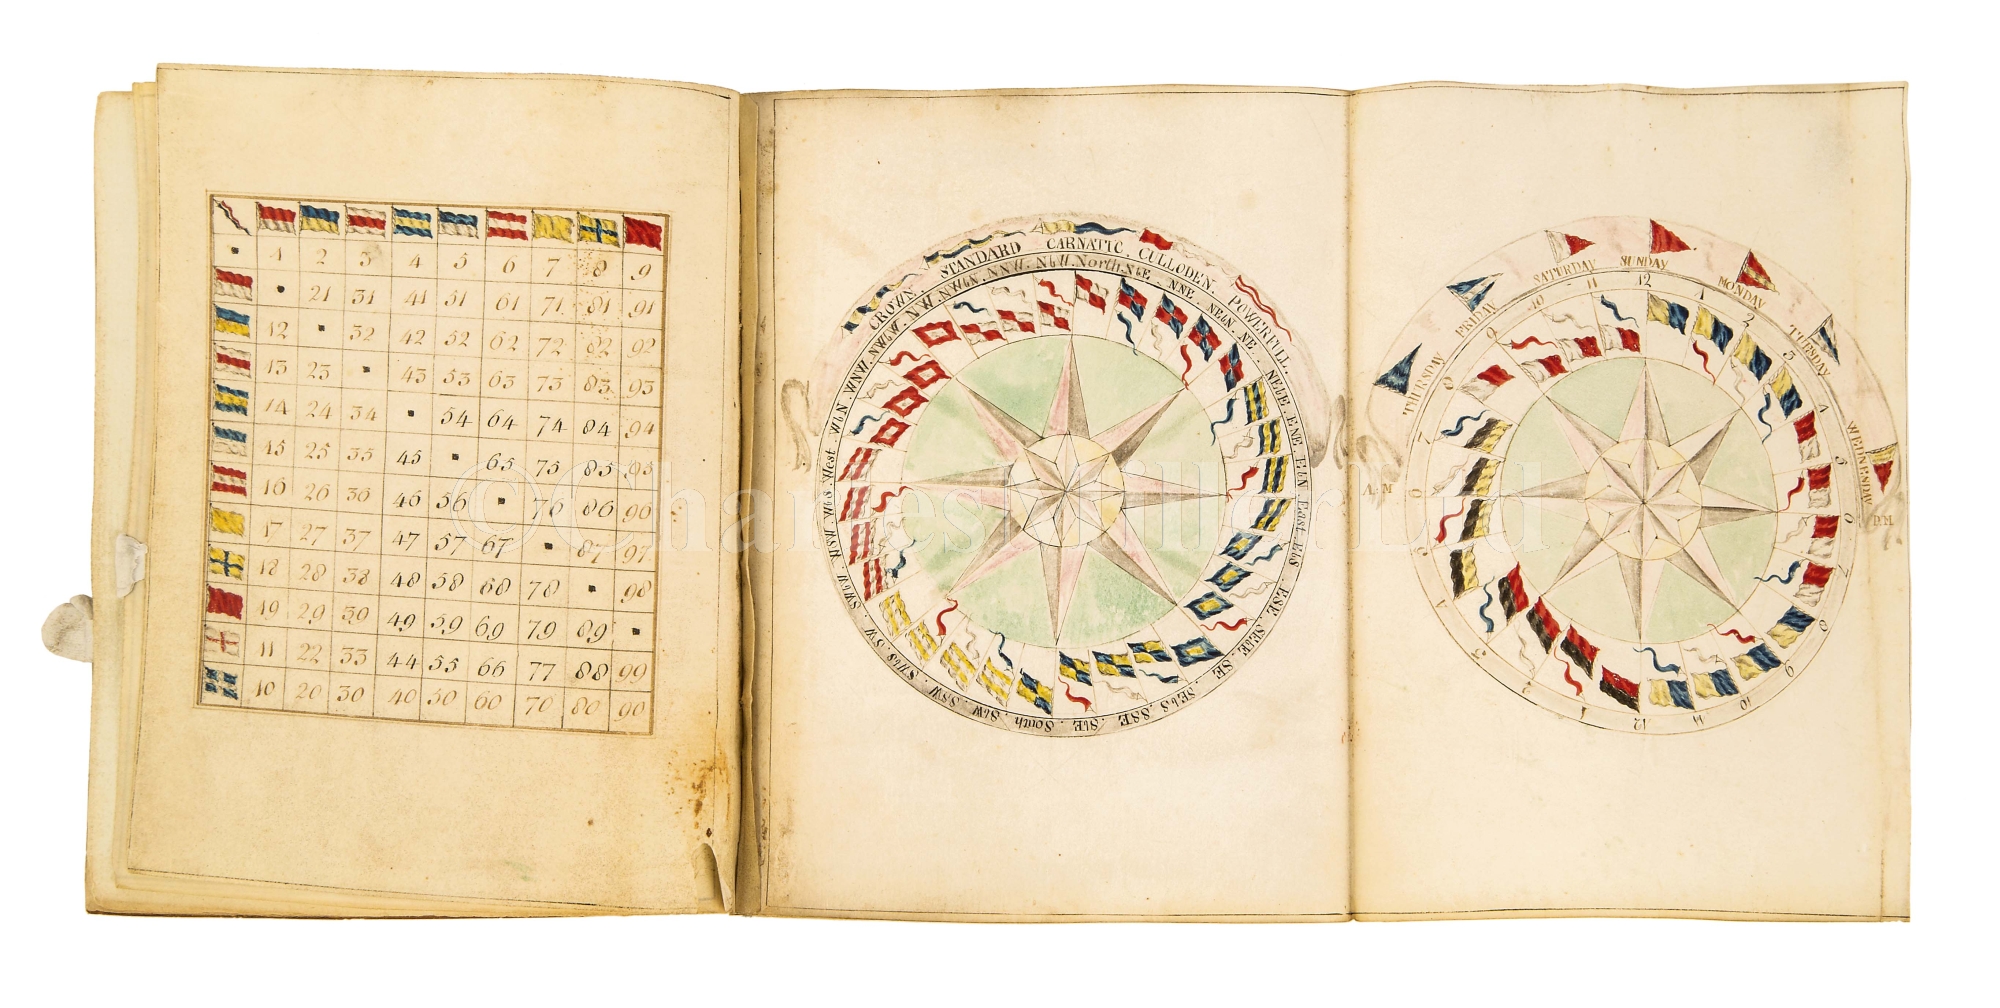 1 2 3 4 5 6 7 8 9
21 31 41 51 61 71 81 91
12 32 42 52 62 72 82 92
13 23 43 53 63 73 83 93
14 24 34 54 64 74 84 94
15 25 35 45 65 75 85 95
16 26 36 46 56 76 86 96
17 27 37 47 57 67 87 97
18 28 38 48 58 68 78 98
19 29 39 49 59 69 79 89
11 22 33 44 55 66 77 88 99
10 20 30 40 50 60 70 80 90
CROWN. STANDARD CARNATIC. CULLODEN. POWERFULL.
North. NbE. NNE. NEbN. NE. NEbE. ENE. EbN. East. EbS. ESE. SEbE. SE. SEbS. SSE. SbE. South. SbW. SSW. SWbS. SW. SWbW. WSW. WbS. West. WbN. WNW. NWbW. NW. NWbN. NNW. NbW.
THURSDAY FRIDAY SATURDAY SUNDAY MONDAY TUESDAY WEDNESDAY
12 1 2 3 4 5 6 7 8 9 10 11 12 1 2 3 4 5 6 7 8 9 10 11
A.M P.M
©Charles Miller Ltd